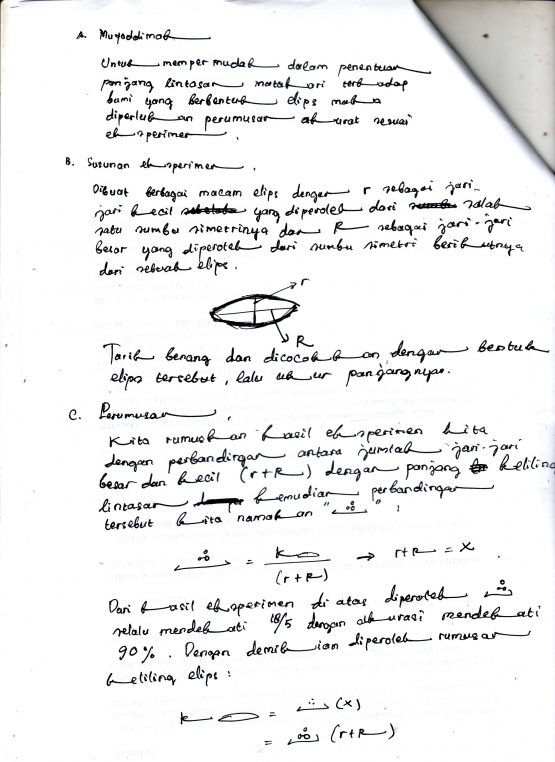 A. Muqoddimah
Untuk mempermudah dalam penentuan
panjang lintasan matahari terhadap
bumi yang berbentuk elips maka
diperlukan perumusan akurat sesuai
eksperimen.
B. Susunan eksperimen.
Dibuat berbagai macam elips dengan r sebagai jari-
jari kecil yang diperoleh dari salah
satu sumbu simetrinya dan R sebagai jari-jari
besar yang diperoleh dari sumbu simetri berikutnya
dari sebuah elips.
r
R
Tarik benang dan dicocokkan dengan bentuk
elips tersebut, lalu ukur panjangnya.
C. Perumusan.
Kita rumuskan hasil eksperimen kita
dengan perbandingan antara jumlah jari-jari
besar dan kecil (r+R) dengan panjang keliling
lintasan kemudian perbandingan
tersebut kita namakan " " :
= K / (r+R) → r+R = X.
Dari hasil eksperimen di atas diperoleh
selalu mendekati 18/5 dengan akurasi mendekati
90%. Dengan demikian diperoleh rumusan
keliling elips :
K = (X)
= (r+R)